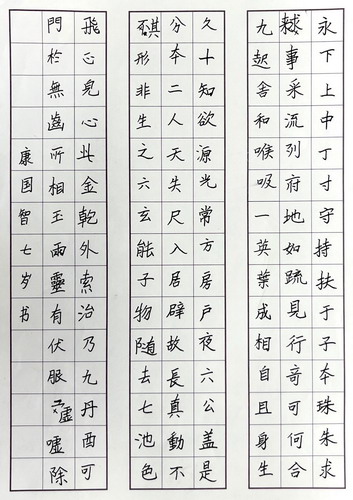 永下上中丁寸守持扶于子本珠朱求
事采流列府地如疏見行奇可何合
九起舍和喉吸一英葉成相自且身生
久十知欲源光常方房戶夜六公盖是
分本二人天失尺入居辟故長真動不
形非生之六玄能子物随去七池色
飛心皃心此金乾外索治乃九丹酉可
門於無齒所相玉雨靈有伏服虛噓除
康国智七岁书